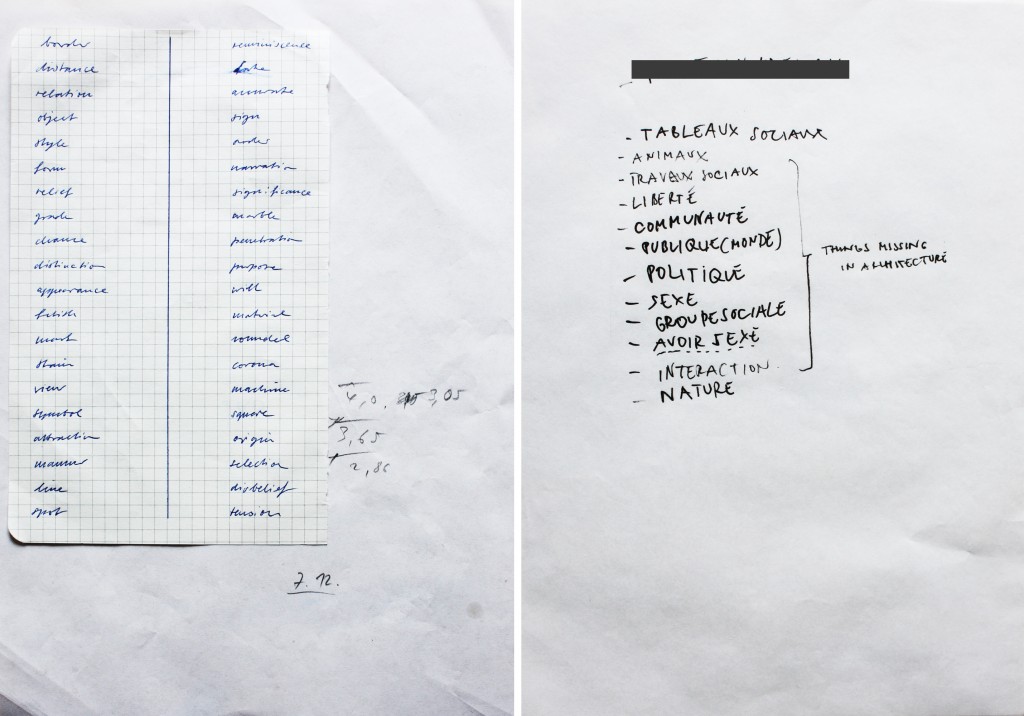 border
distance
relation
object
style
form
relief
grade
chance
distinction
appearance
fetish
mark
stain
view
symbol
attraction
manner
line
spot
reminiscence
accurate
sign
order
narration
significance
marble
penetration
purpose
will
material
roundel
corona
machine
square
origin
selection
disbelief
tension
4,0. 3,05
3,65
2,86
7.12.
- TABLEAUX SOCIAUX
- ANIMAUX
- TRAVAUX SOCIAUX
- LIBERTÉ
- COMMUNAUTÉ
- PUBLIQUE (MONDE)
- POLITIQUE
- SEXE
- GROUPE SOCIALE
- AVOIR SEXE
- INTERACTION
- NATURE
THINGS MISSING
IN ARCHITECTURE